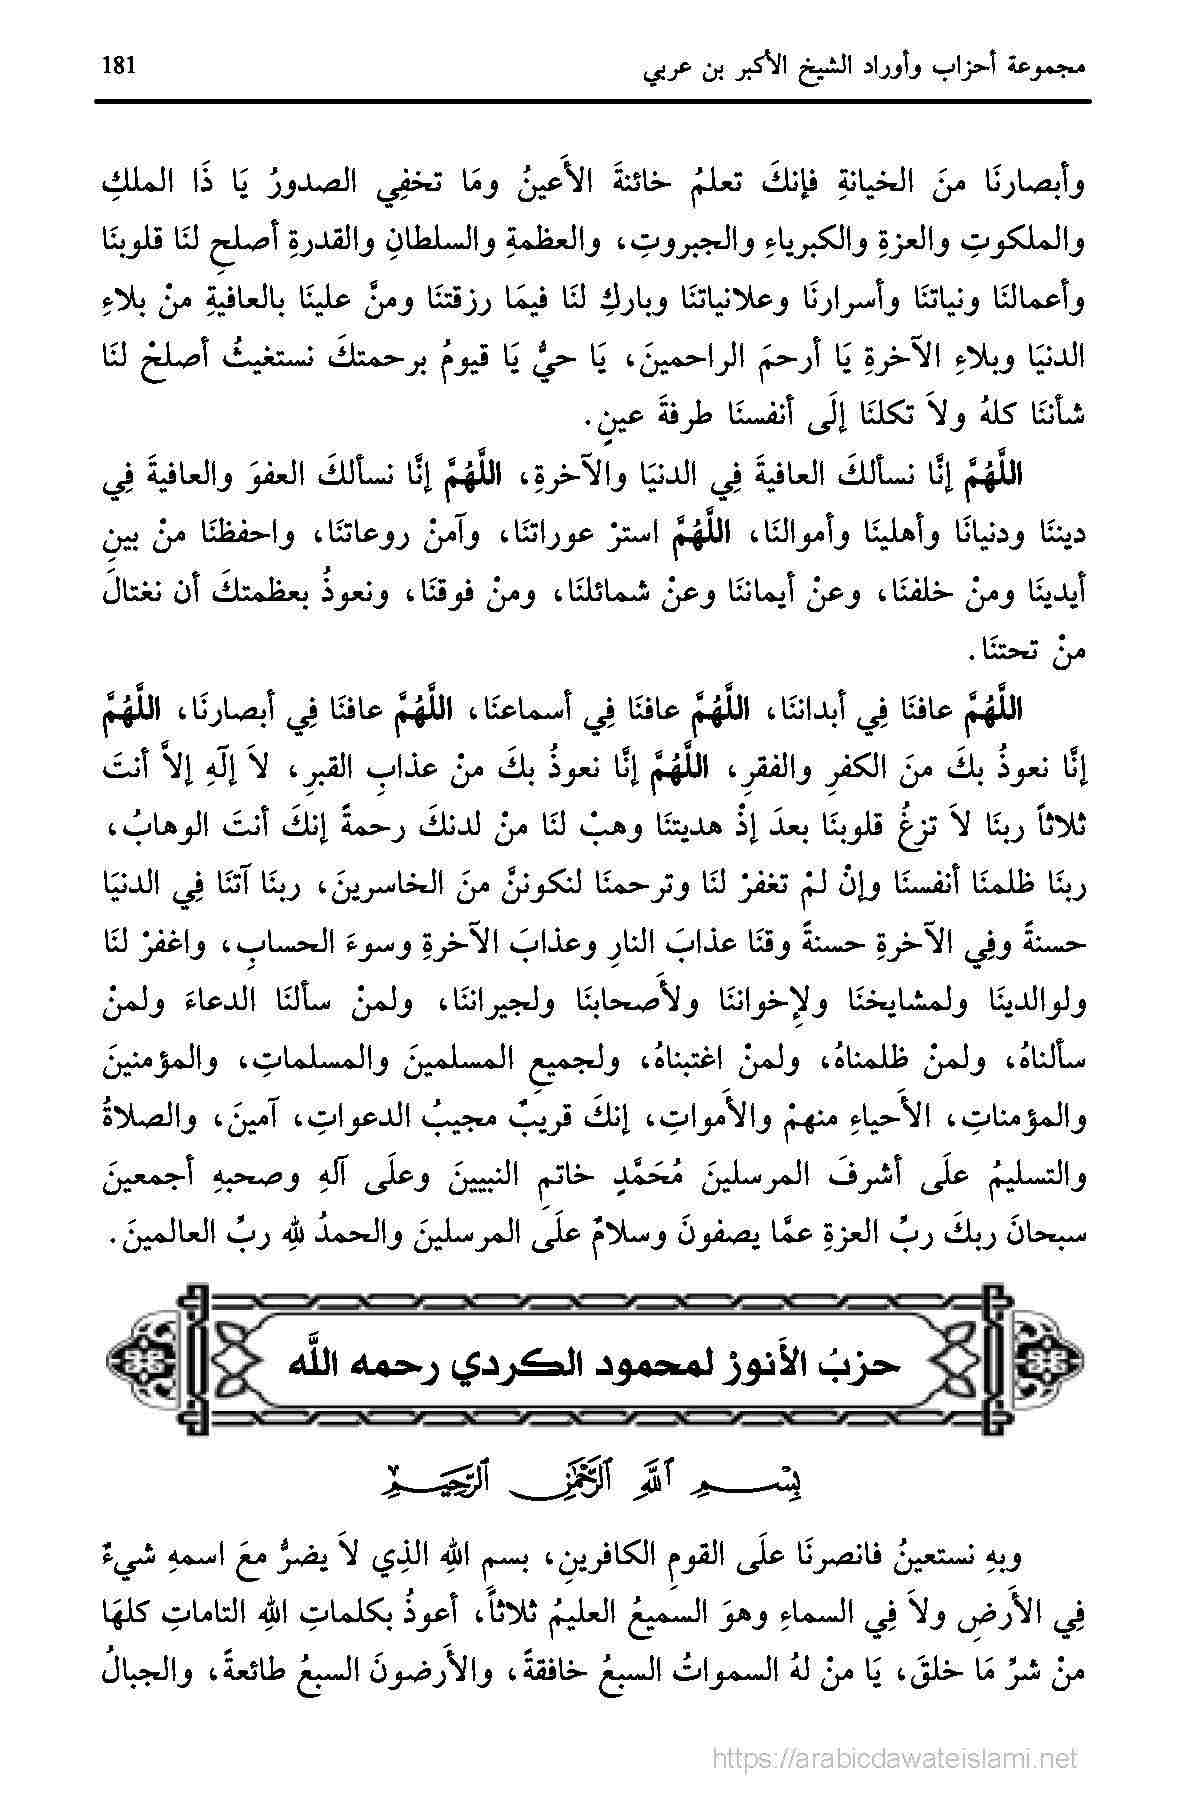 مجموعة أحزاب وأوراد الشيخ الأكبر بن عربي 181
وأبصارنَا منَ الخيانةِ فإنكَ تعلمُ خائنةَ الأَعينُ ومَا تخفِي الصدورُ يَا ذَا الملكِ
والملكوتِ والعزةِ والكبرياءِ والجبروتِ، والعظمةِ والسلطانِ والقدرةِ أصلحِ لنَا قلوبنَا
وأعمالنَا ونياتنَا وأسرارنَا وعلانياتنَا وباركِ لنَا فيمَا رزقتنَا ومنَّ علينَا بالعافيةِ منْ بلاءِ
الدنيَا وبلاءِ الآخرةِ يَا أرحمَ الراحمينَ، يَا حيُّ يَا قيومُ برحمتكَ نستغيثُ أصلحْ لنَا
شأننَا كلهُ ولاَ تكلنَا إلَى أنفسنَا طرفةَ عينٍ.
اللَّهُمَّ إنَّا نسألكَ العافيةَ فِي الدنيَا والآخرةِ، اللَّهُمَّ إنَّا نسألكَ العفوَ والعافيةَ فِي
ديننَا ودنيانَا وأهلينَا وأموالنَا، اللَّهُمَّ استرْ عوراتنَا، وآمنْ روعاتنَا، واحفظنَا منْ بينِ
أيدينَا ومنْ خلفنَا، وعنْ أيماننَا وعنْ شمائلنَا، ومنْ فوقنَا، ونعوذُ بعظمتكَ أن نغتالَ
منْ تحتنَا.
اللَّهُمَّ عافنَا فِي أبداننَا، اللَّهُمَّ عافنَا فِي أسماعنَا، اللَّهُمَّ عافنَا فِي أبصارنَا، اللَّهُمَّ
إنَّا نعوذُ بكَ منَ الكفرِ والفقرِ، اللَّهُمَّ إنَّا نعوذُ بكَ منْ عذابِ القبرِ، لاَ إلَهِ إلاَّ أنتَ
ثلاثاً ربنَا لاَ تزغُ قلوبنَا بعدَ إذْ هديتنَا وهبْ لنَا منْ لدنكَ رحمةً إنكَ أنتَ الوهابُ،
ربنَا ظلمنَا أنفسنَا وإنْ لمْ تغفرْ لنَا وترحمنَا لنكوننَّ منَ الخاسرينَ، ربنَا آتنَا فِي الدنيَا
حسنةً وفِي الآخرةِ حسنةً وقنَا عذابَ النارِ وعذابَ الآخرةِ وسوءَ الحسابِ، واغفرْ لنَا
ولوالدينَا ولمشايخنَا ولإِخواننَا ولأَصحابنَا ولجيراننَا، ولمنْ سألنَا الدعاءَ ولمنْ
سألناهُ، ولمنْ ظلمناهُ، ولمنْ اغتبناهُ، ولجميعِ المسلمينَ والمسلماتِ، والمؤمنينَ
والمؤمناتِ، الأَحياءِ منهمْ والأَمواتِ، إنكَ قريبٌ مجيبُ الدعواتِ، آمينَ، والصلاةُ
والتسليمُ علَى أشرفَ المرسلينَ مُحَمَّدٍ خاتمِ النبيينَ وعلَى آلهِ وصحبهِ أجمعينَ
سبحانَ ربكَ ربِّ العزةِ عمَّا يصفونَ وسلامٌ علَى المرسلينَ والحمدُ للهِ ربِّ العالمينَ.
حزبُ الأَنورْ لمحمود الكردي رحمه اللَّه
بِسْمِ ٱللَّهِ ٱلرَّحْمَٰنِ ٱلرَّحِيمِ
وبهِ نستعينُ فانصرنَا علَى القومِ الكافرينِ، بسمِ اللهِ الذِي لاَ يضرُّ معَ اسمهِ شيءٌ
فِي الأَرضِ ولاَ فِي السماءِ وهوَ السميعُ العليمُ ثلاثاً، أعوذُ بكلماتِ اللهِ التاماتِ كلهَا
منْ شرِّ مَا خلقَ، يَا منْ لهُ السمواتُ السبعُ خافقةً، والأَرضونَ السبعُ طائعةً، والجبالُ
https://arabicdawateislami.net